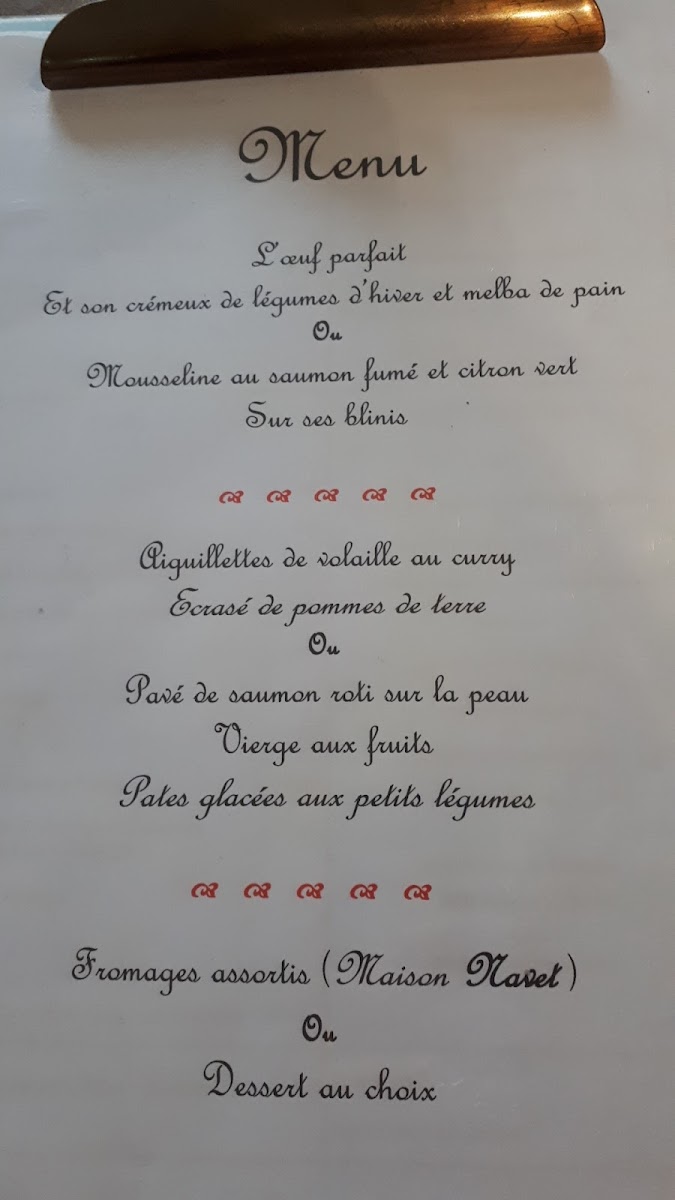 Menu
L'œuf parfait
Et son crémeux de légumes d'hiver et melba de pain
Ou
Mousseline au saumon fumé et citron vert
Sur ses blinis
Aiguillettes de volaille au curry
Ecrasé de pommes de terre
Ou
Pavé de saumon roti sur la peau
Vierge aux fruits
Pates glacées aux petits légumes
Fromages assortis (Maison Navet)
Ou
Dessert au choix